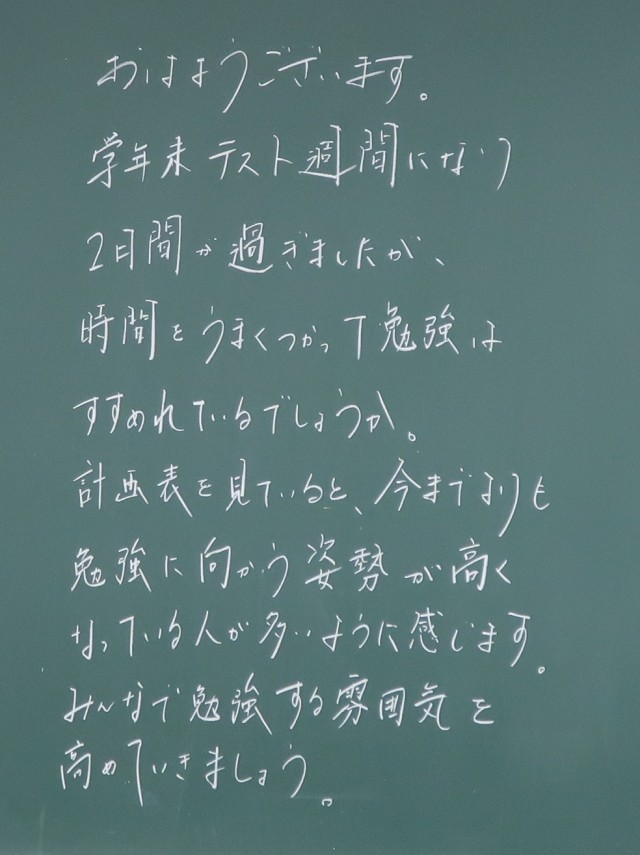 おはようございます。
学年末テスト週間になり
2日間が過ぎましたが、
時間をうまくつかって勉強は
すすめれているでしょうか。
計画表を見ていると、今までよりも
勉強に向かう姿勢が高く
なっている人が多いように感じます。
みんなで勉強する雰囲気を
高めていきましょう。